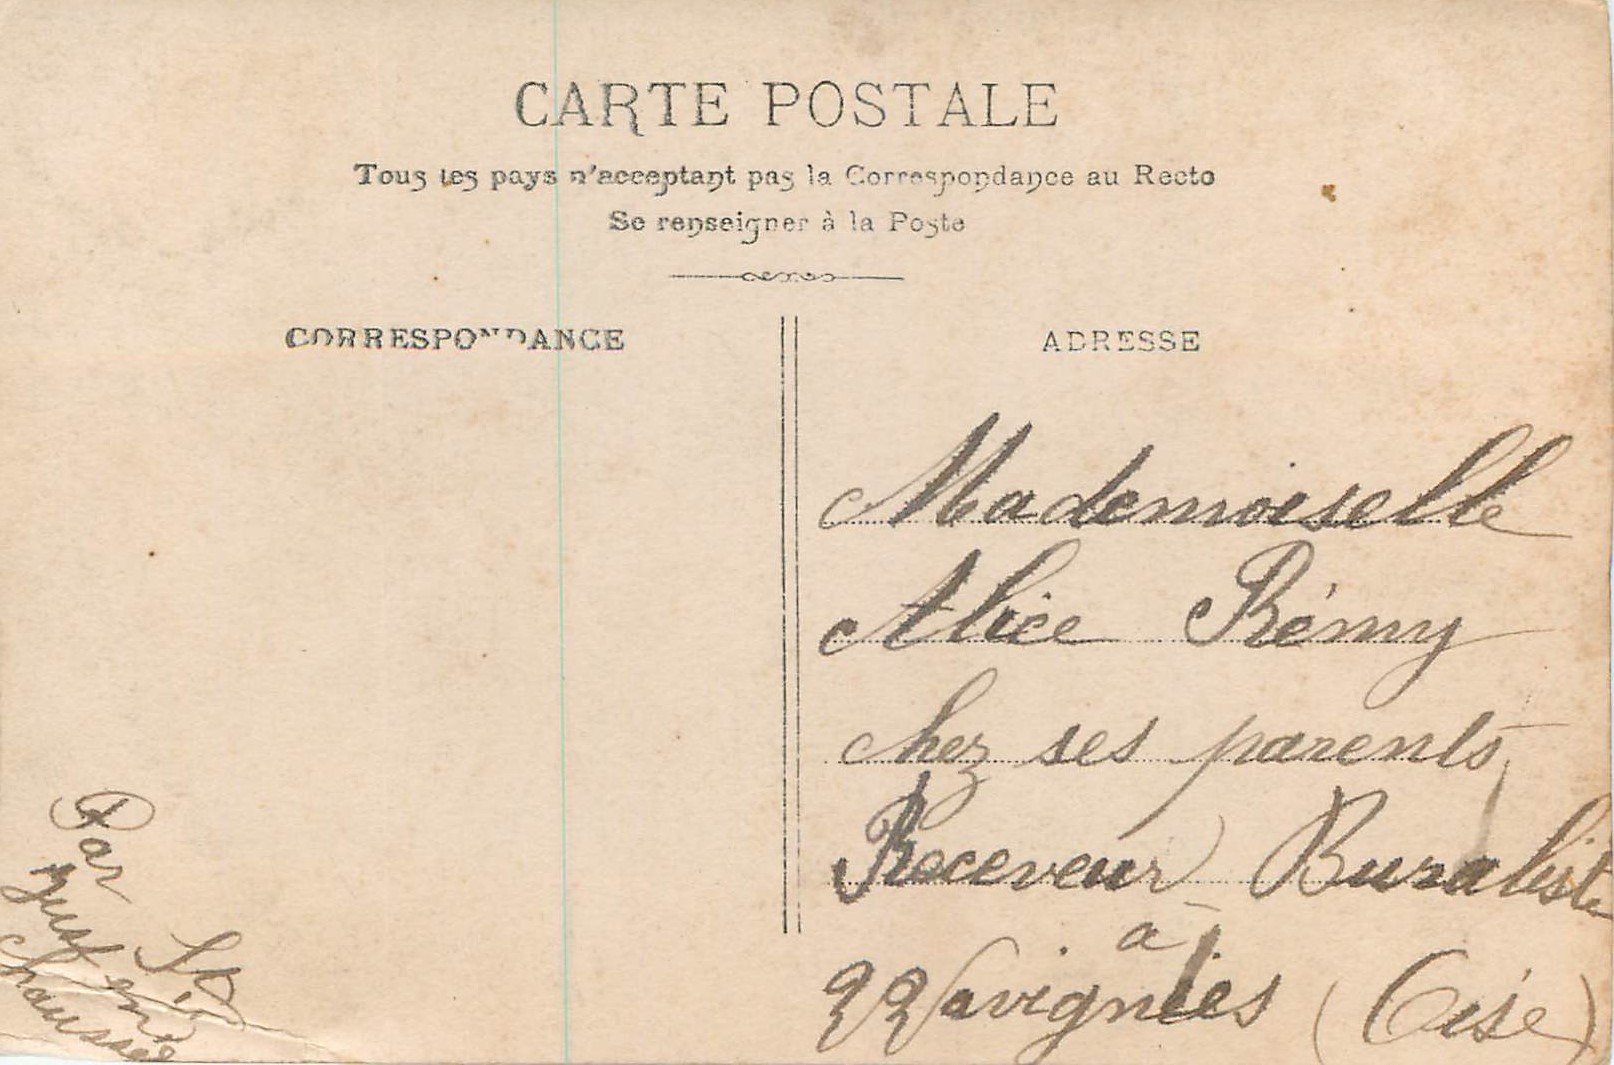 CARTE POSTALE
Tous les pays n'acceptant pas la Correspondance au Recto
Se renseigner à la Poste
CORRESPONDANCE
ADRESSE
Mademoiselle
Alice Rémy
chez ses parents
Receveur Buraliste
à
Lavignies (Oise)
Par St
Just en
chaussée